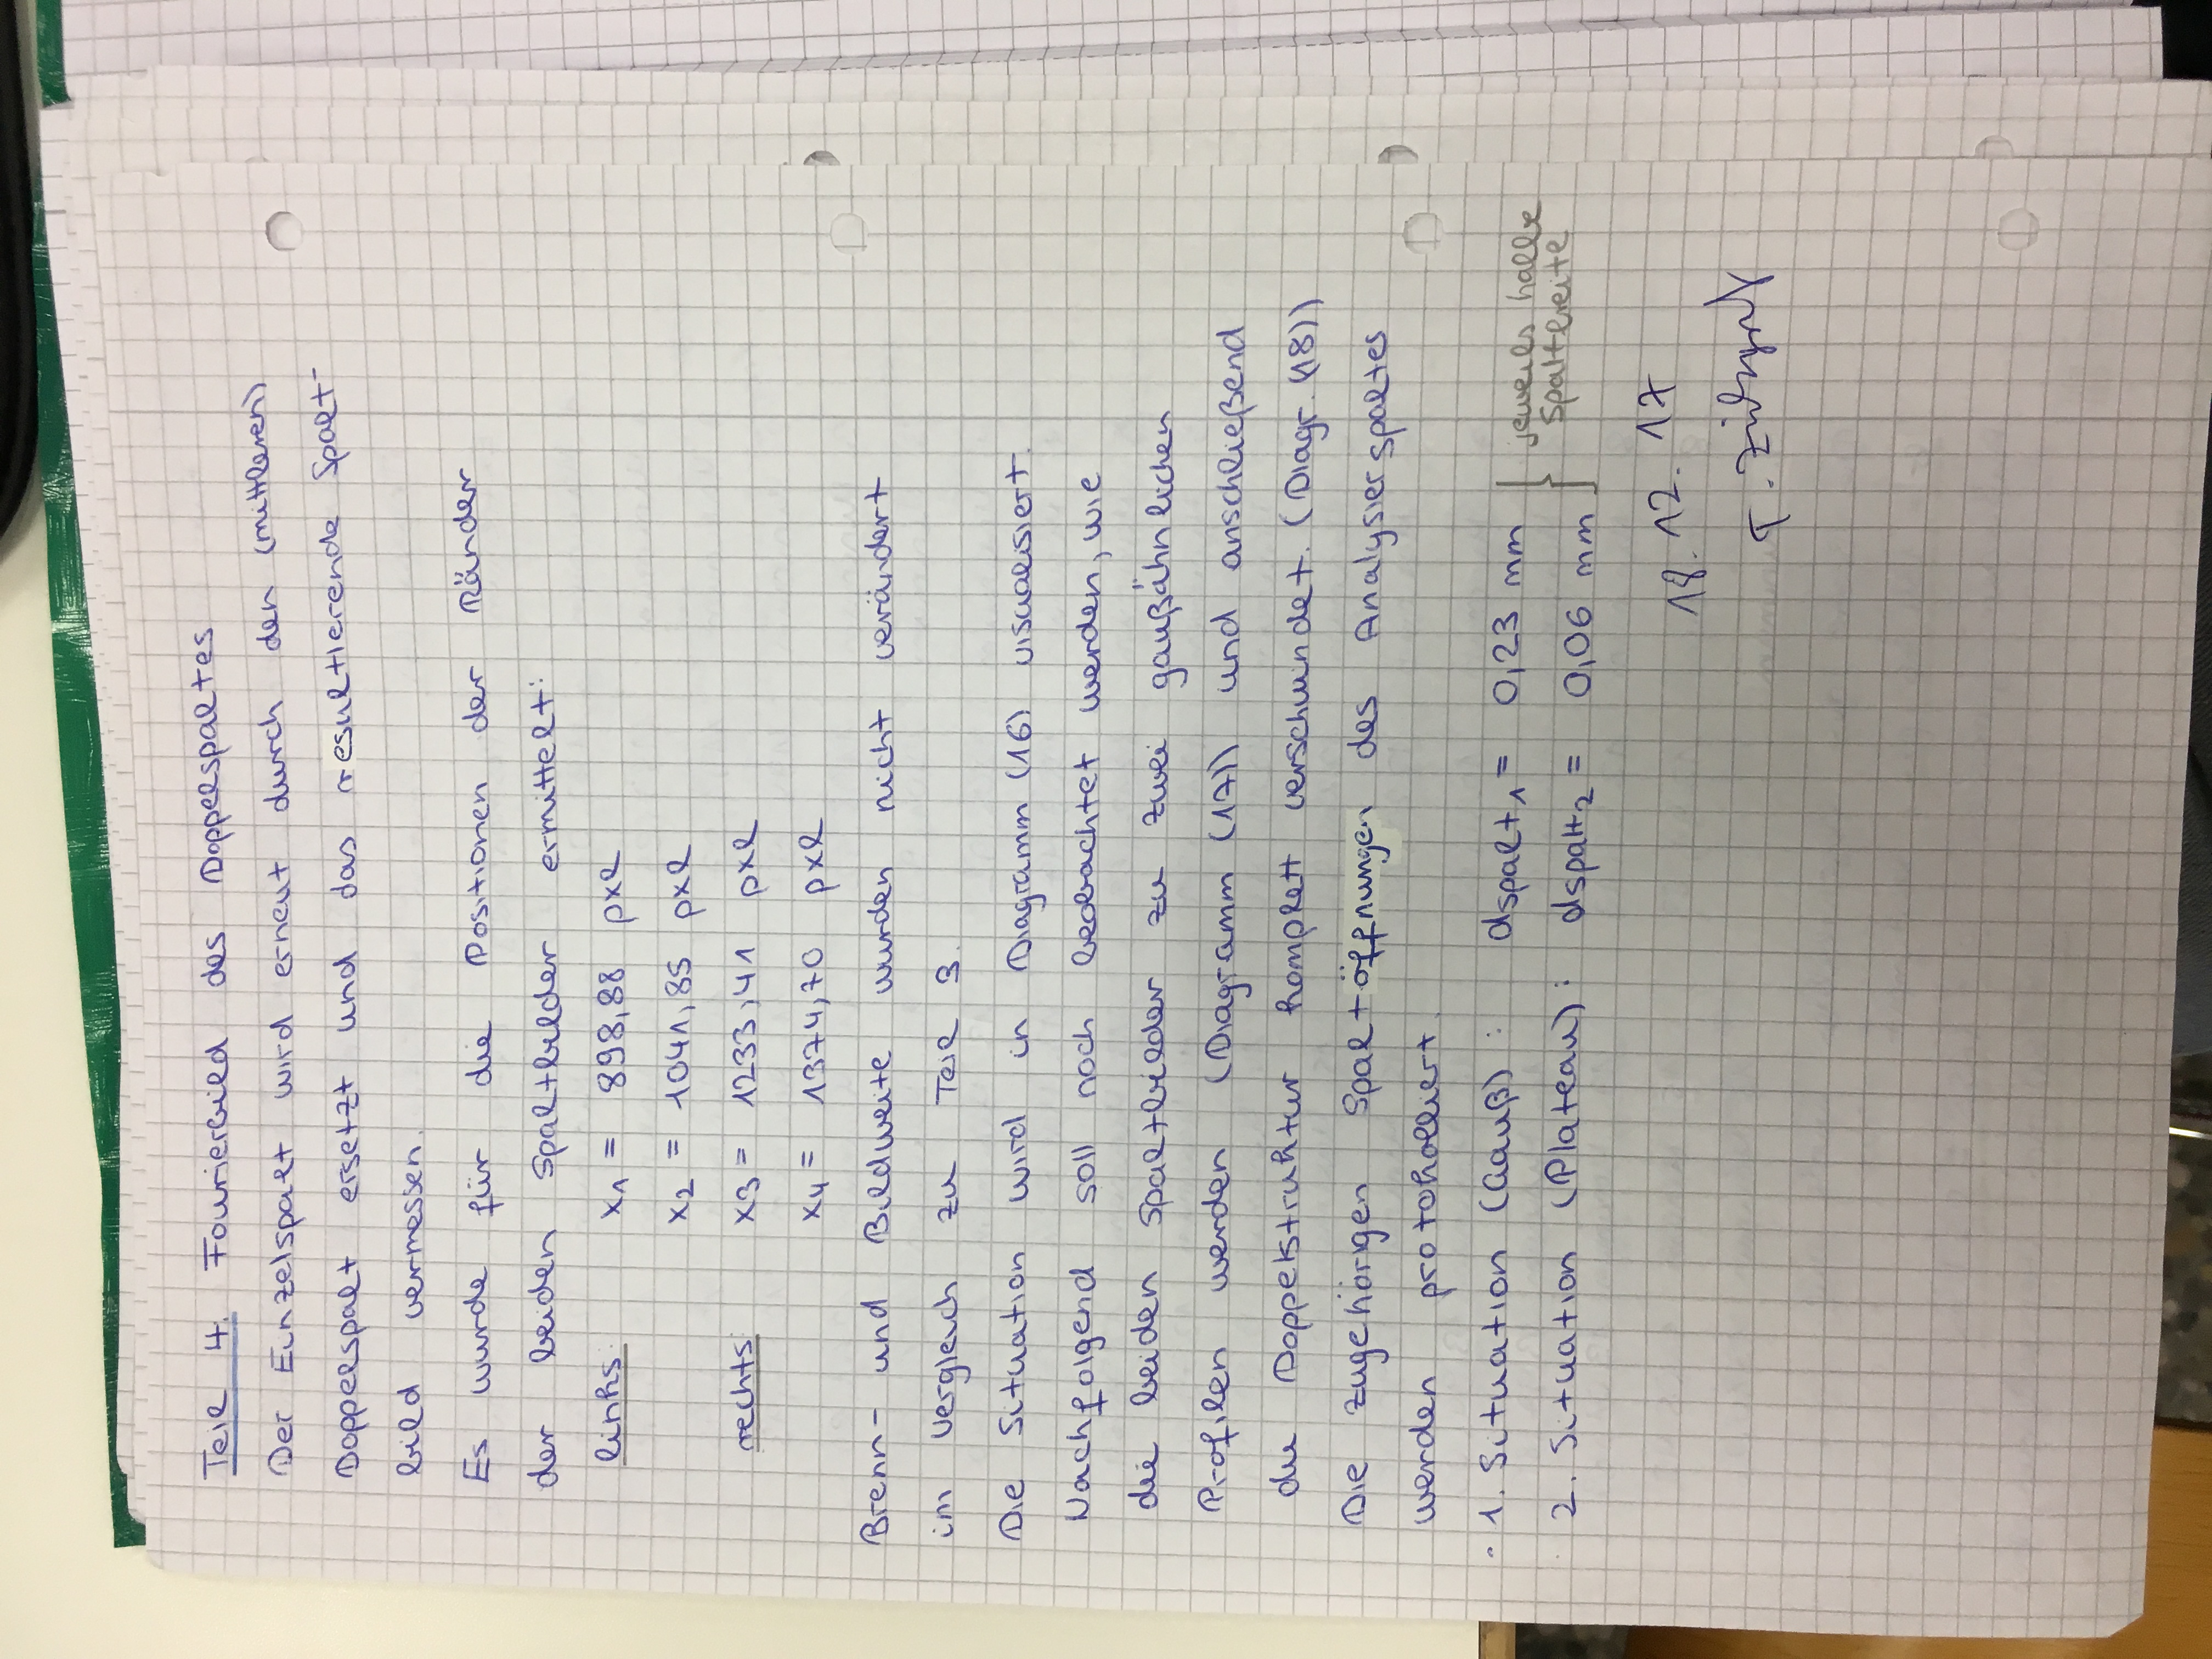 Teil 4: Fourierbild des Doppelspaltes
Der Einzelspalt wird erneut durch den (mittleren)
Doppelspalt ersetzt und das resultierende Spalt-
bild vermessen.
Es wurde für die Positionen der Ränder
der beiden Spaltbilder ermittelt:
links: x₁ = 898,88 pxl
x₂ = 1041,85 pxl
rechts: x₃ = 1233,41 pxl
x₄ = 1374,70 pxl
Brenn- und Bildweite wurden nicht verändert
im Vergleich zu Teil 3.
Die Situation wird in Diagramm (16) visualisiert.
Nachfolgend soll noch beobachtet werden, wie
die beiden Spaltbilder zu zwei gaußähnlichen
Profilen werden (Diagramm (17)) und anschließend
die Doppelstruktur komplett verschwindet. (Diagr. (18))
Die zugehörigen Spaltöffnungen des Analysierspaltes
werden protokolliert.
1. Situation (Gauß): dspalt₁ = 0,23 mm } jeweils halbe
2. Situation (Plateau): dspalt₂ = 0,06 mm Spaltbreite
18.12.17
T.